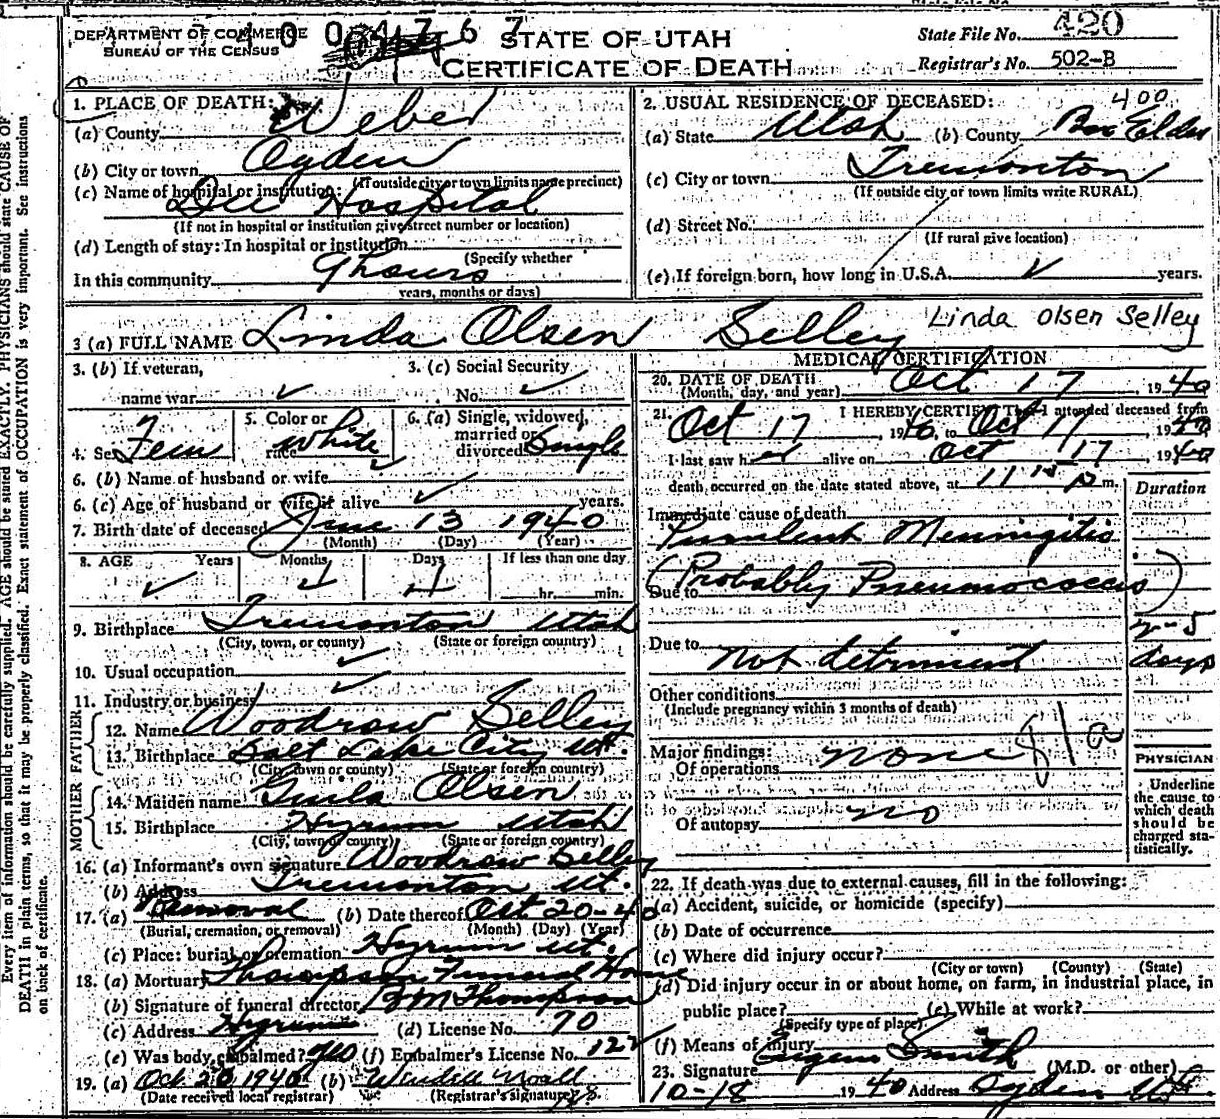 DEPARTMENT OF COMMERCE
BUREAU OF THE CENSUS
4 0 0 4 7 6 7
STATE OF UTAH
CERTIFICATE OF DEATH
State File No. 420
Registrar's No. 502-B
1. PLACE OF DEATH:
(a) County Weber
(b) City or town Ogden
(If outside city or town limits name precinct)
(c) Name of hospital or institution:
Dee Hospital
(If not in hospital or institution give street number or location)
(d) Length of stay: In hospital or institution
(Specify whether
In this community 9 hours
years, months or days)
2. USUAL RESIDENCE OF DECEASED:
400
(a) State Utah (b) County Box Elder
(c) City or town Tremonton
(If outside city or town limits write RURAL)
(d) Street No.
(If rural give location)
(e) If foreign born, how long in U.S.A. years.
3 (a) FULL NAME Linda Olsen Selley Linda Olsen Selley
3. (b) If veteran,
name war
3. (c) Social Security
No.
4. Sex Fem
5. Color or
race White
6. (a) Single, widowed,
married or
divorced Single
6. (b) Name of husband or wife
6. (c) Age of husband or wife if alive years.
7. Birth date of deceased June 13 1940
(Month) (Day) (Year)
8. AGE Years Months Days If less than one day
4 4 hr. min.
9. Birthplace Tremonton Utah
(City, town, or county) (State or foreign country)
10. Usual occupation
11. Industry or business
FATHER
12. Name Woodrow Selley
13. Birthplace Salt Lake City Ut.
(City, town or county) (State or foreign country)
MOTHER
14. Maiden name Olsen
15. Birthplace Hyrum Utah
(City, town or county) (State or foreign country)
16. (a) Informant's own signature Woodrow Selley
(b) Address Tremonton Ut.
17. (a) Removal (b) Date thereof Oct 20-40
(Burial, cremation, or removal) (Month) (Day) (Year)
(c) Place: burial or cremation Hyrum Ut.
18. (a) Mortuary Thompson Funeral Home
(b) Signature of funeral director BM Thompson
(c) Address Hyrum (d) License No. 70
(e) Was body embalmed? yes (f) Embalmer's License No. 122
19. (a) Oct 20 1940 (b) Wendell Noall
(Date received local registrar) (Registrar's signature)
MEDICAL CERTIFICATION
20. DATE OF DEATH Oct 17 1940
(Month, day, and year)
21. I HEREBY CERTIFY That I attended deceased from
Oct 17, 1940, to Oct 17 1940
I last saw her alive on Oct 17 1940
death occurred on the date stated above, at 11 15 p m.
Duration
Immediate cause of death
Purulent Meningitis
(Probably Pneumococcus)
Due to
2-5
days
Due to
Not determined
Other conditions
(Include pregnancy within 3 months of death)
Major findings:
Of operations none
81a
Of autopsy no
PHYSICIAN
Underline
the cause to
which death
should be
charged sta-
tistically.
22. If death was due to external causes, fill in the following:
(a) Accident, suicide, or homicide (specify)
(b) Date of occurrence
(c) Where did injury occur?
(City or town) (County) (State)
(d) Did injury occur in or about home, on farm, in industrial place, in
public place? (e) While at work?
(Specify type of place)
(f) Means of injury
23. Signature Eugene Smith (M.D. or other)
10-18 1940 Address Ogden Ut.
Every item of information should be carefully supplied. AGE should be stated EXACTLY. PHYSICIANS should state CAUSE OF
DEATH in plain terms, so that it may be properly classified. Exact statement of OCCUPATION is very important. See instructions
on back of certificate.